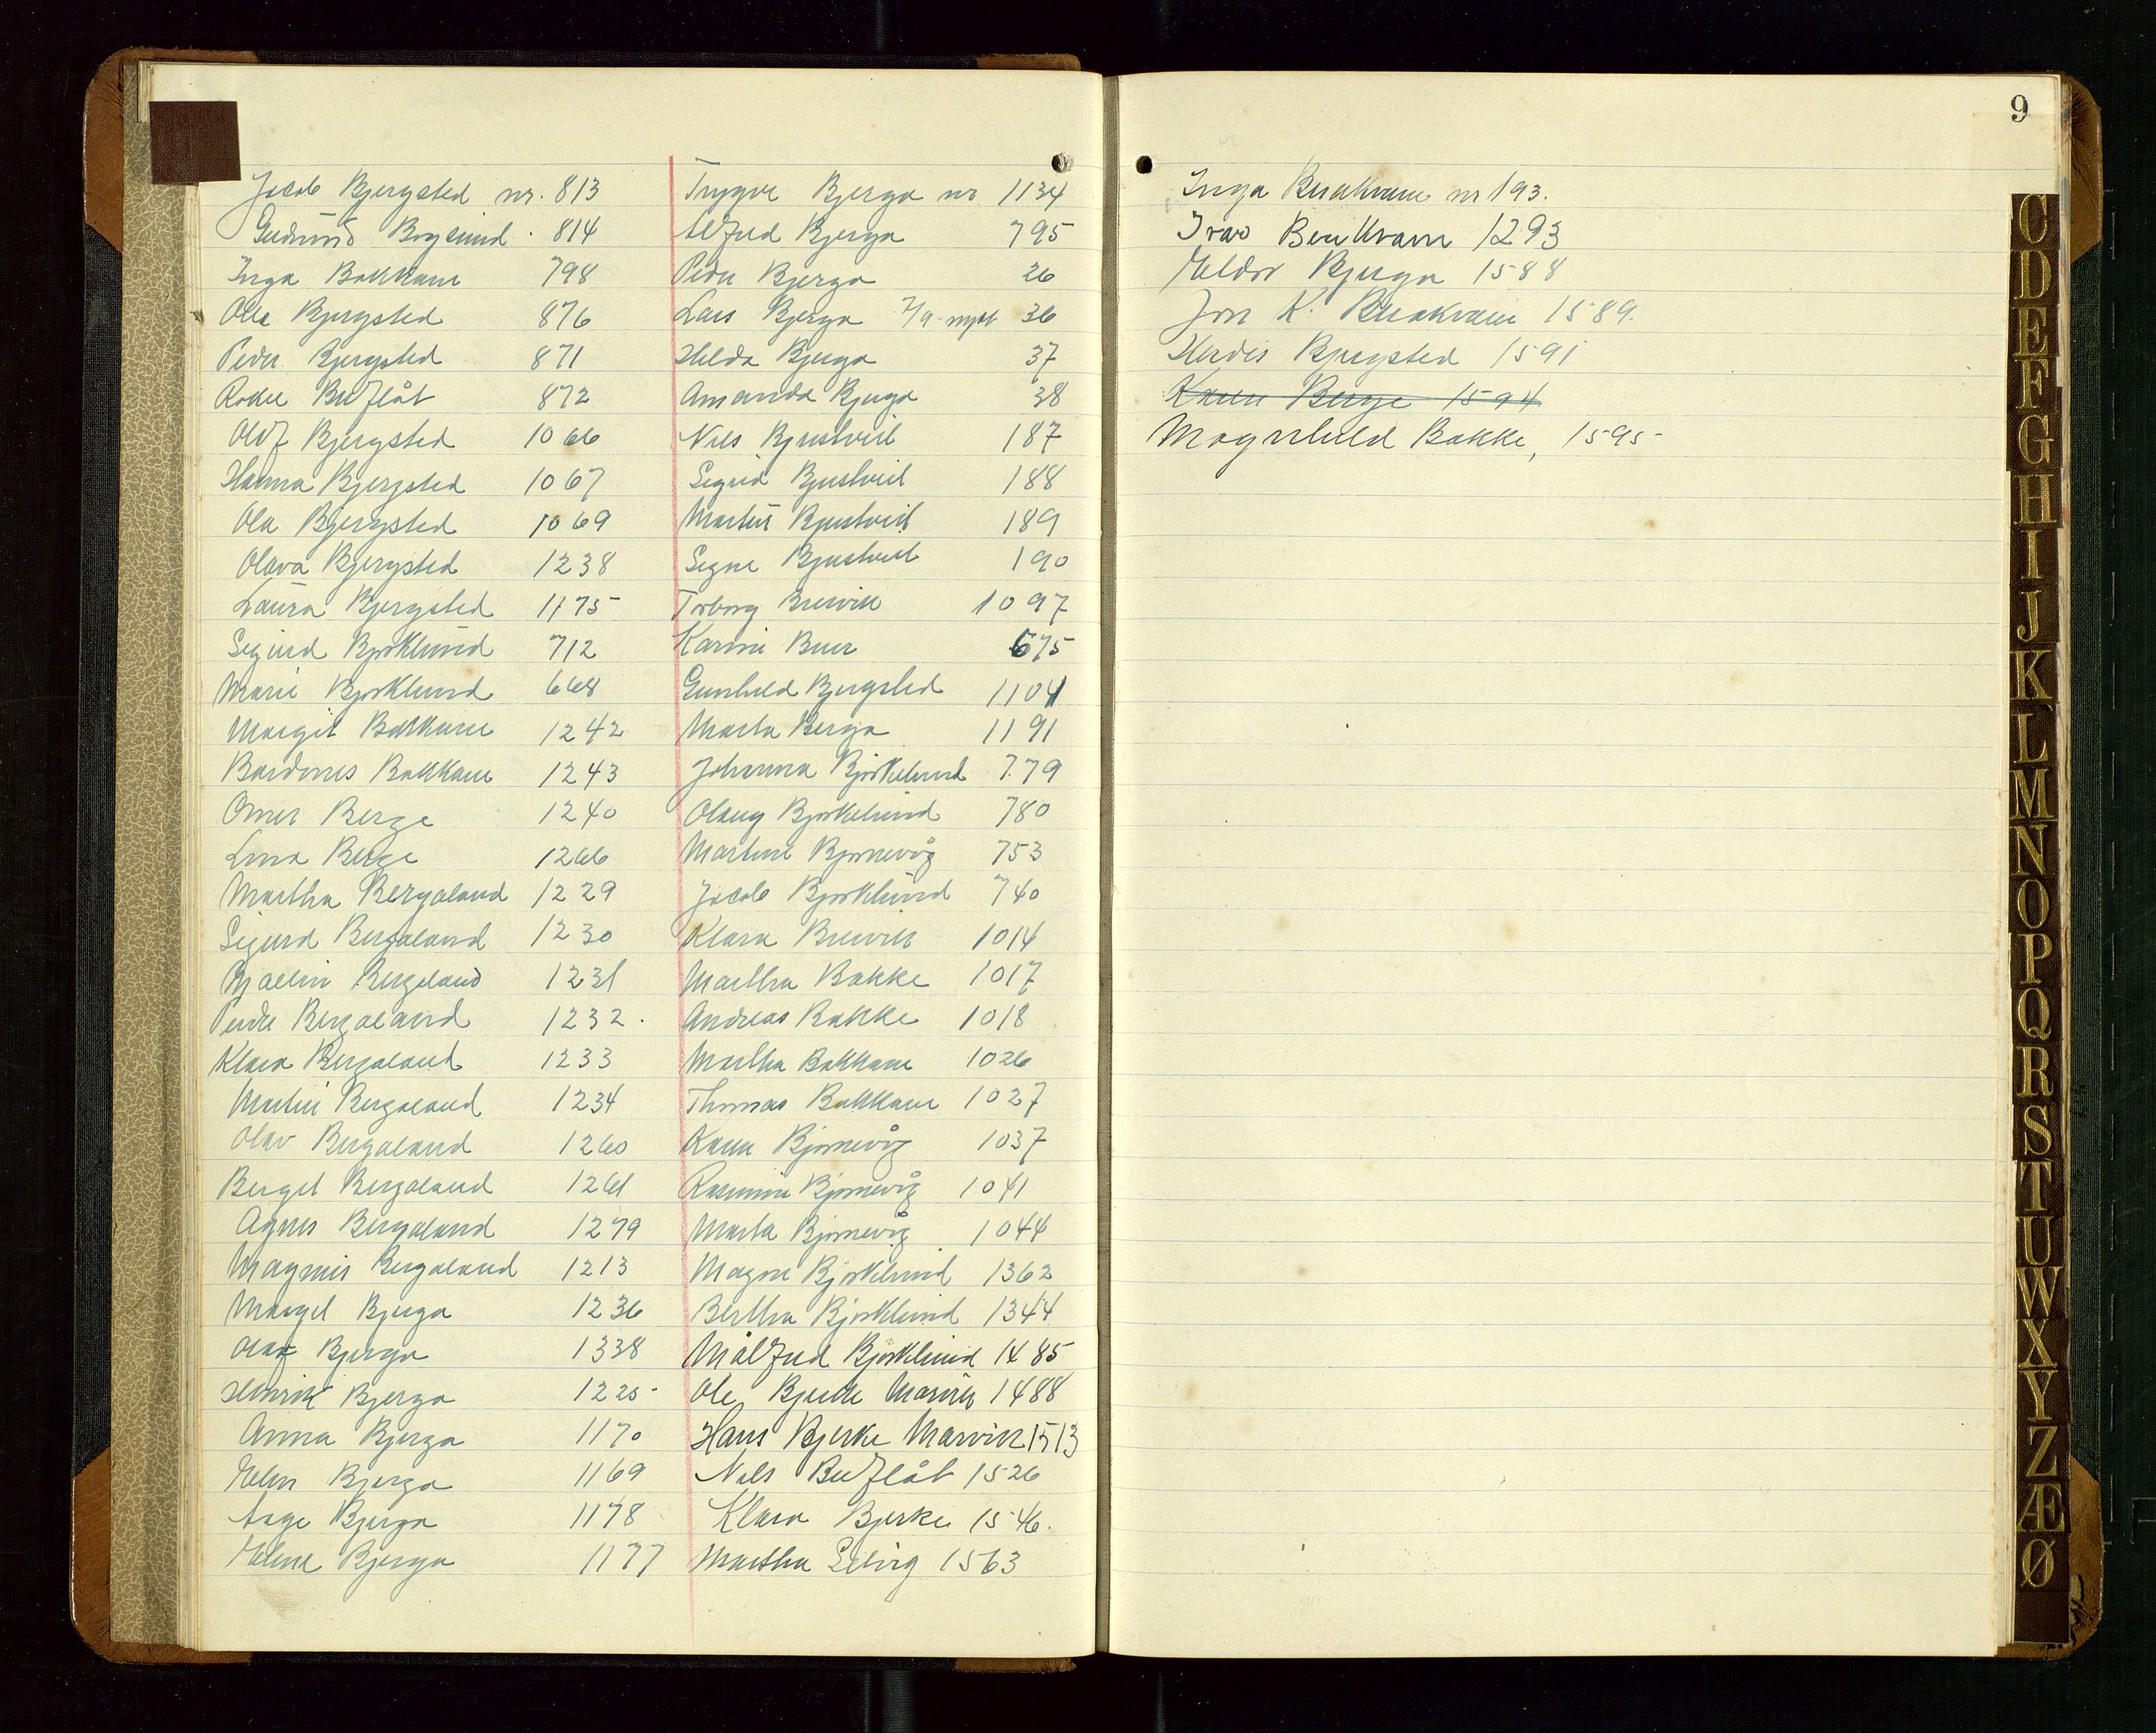 Jacob Bjergsted nr. 813
Gudrund Bogsund 814
Inga Bakkane 798
Olla Bjergsted 876
Peder Bjergsted 871
872
Oluf Bjergsted 1066
Hanna Bjergsted 1067
Ola Bjergsted 1069
Olava Bjergsted 1238
Laura Bjergsted 1175
Sigurd Bjørklund 712
Marie Bjørklund 668
Margit Bakkane 1242
Bakkane 1243
Omer Berge 1240
Lina Berge 1266
Martha Bergaland 1229
Sigurd Bergaland 1230
Bergeland 1231
Peder Bergaland 1232.
Klara Bergaland 1233
Martin Bergaland 1234
Olav Bergaland 1260
Berget Bergaland 1261
Agnes Bergaland 1279
Magnus Bergaland 1213
Margit Bjerga 1236
Olaf Bjerga 1338
Henrik Bjerga 1225
Anna Bjerga 1170
Elen Bjerga 1169
Aage Bjerga 1178
Eline Bjerga 1177
Trygve Bjerga nr 1134
Alfred Bjerga 795
Peder Bjerga 26
Lars Bjerga 36
Hilda Bjerga 37
Amanda Bjerga 38
Nils Bjustveit 187
Sigrid Bjustveit 188
Martin Bjustveit 189
Signe Bjustveit 190
Torborg Brevik 1097
Karine Buer 675
Gunhild Bjergsted 1104
Marta Berga 1191
Johanna Bjørkelund 779
Olaug Bjørkelund 780
Martine Bjørnevåg 753
Jacob Bjørklund 740
Klara Brevik 1014
Martha Bakke 1017
Andreas Bakke 1018
Martha Bakkane 1026
Thomas Bakkane 1027
Karen Bjørnevåg 1037
Rasmine Bjørnevåg 1041
Marta Bjørnevåg 1044
Magne Bjørklund 1362
Bertha Bjørklund 1344
Målfrid Bjørklund 1485
Ole Bjerke Marvik 1488
Hans Bjerke Marvik 1513
Nils 1526
Klara Bjerke 1546.
Martha 1563
9
Inga nr 193.
Ivar 1293
Eldor Bjerga 1588
Jon K. 1589.
Herdis Bjergsted 1591
Karen Berge 1594
Magnhild Bakke, 1595
C
D
E
F
G
H
I
J
K
L
M
N
O
P
Q
R
S
T
U
W
X
Y
Z
Æ
Ø